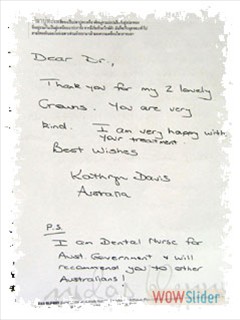 Dear Dr.,
Thank you for my 2 lovely
Crowns. You are very
kind. I am very happy with
your treatment.
Best Wishes
Kathryn Davis
Australia
P.S.
I am Dental Nurse for
Aust Government & will
recommend you to other
Australians!
WOWSlider